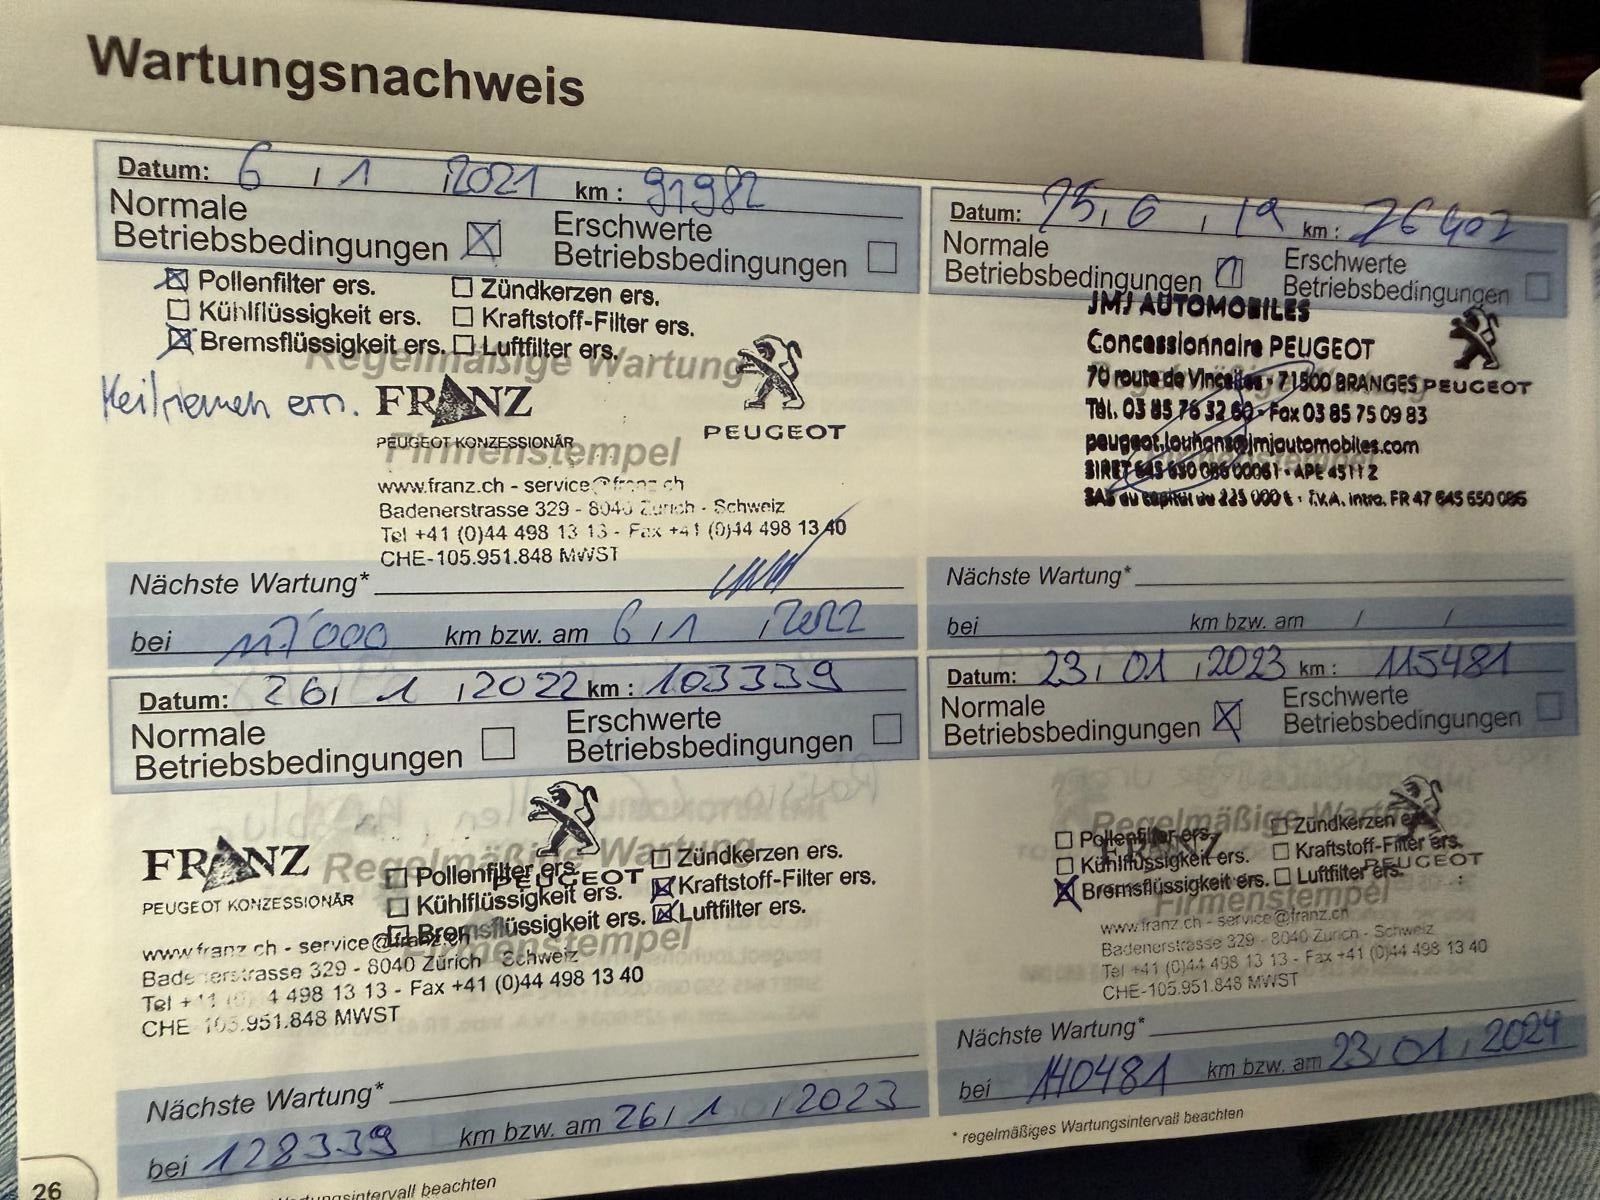 Wartungsnachweis
Datum: 6 / 1 / 2021 km : 91982
Normale
Betriebsbedingungen
Erschwerte
Betriebsbedingungen
Pollenfilter ers.
Zündkerzen ers.
Kühlflüssigkeit ers.
Kraftstoff-Filter ers.
Bremsflüssigkeit ers.
Luftfilter ers.
Regelmäßige Wartung
Keilriemen ern.
FRANZ
PEUGEOT
PEUGEOT KONZESSIONÄR
Firmenstempel
www.franz.ch - service@franz.ch
Badenerstrasse 329 - 8040 Zürich - Schweiz
Tel +41 (0)44 498 13 13 - Fax +41 (0)44 498 13 40
CHE-105.951.848 MWST
Nächste Wartung*
bei 117'000 km bzw. am 6 / 1 / 2022
Datum: 25, 6, 19 km :
Normale
Betriebsbedingungen
Erschwerte
Betriebsbedingungen
JMJ AUTOMOBILES
Concessionnaire PEUGEOT
70 route de Vincelles - 71500 BRANGES
PEUGEOT
Tél. 03 85 76 32 60 - Fax 03 85 75 09 83
peugeot.louhans@jmjautomobiles.com
SIRET 645 650 086 00061 - APE 4511 Z
SAS au capital de 225 000 € - T.V.A. intra. FR 47 645 650 086
Nächste Wartung*
bei km bzw. am / /
Datum: 26, 1, 2022 km : 103339
Normale
Betriebsbedingungen
Erschwerte
Betriebsbedingungen
FRANZ
Regelmäßige Wartung
PEUGEOT
Pollenfilter ers.
Zündkerzen ers.
Kühlflüssigkeit ers.
Kraftstoff-Filter ers.
Bremsflüssigkeit ers.
Luftfilter ers.
PEUGEOT KONZESSIONÄR
Firmenstempel
www.franz.ch - service@franz.ch
Badenerstrasse 329 - 8040 Zürich Schweiz
Tel +41 (0)44 498 13 13 - Fax +41 (0)44 498 13 40
CHE-105.951.848 MWST
Nächste Wartung*
bei 128339 km bzw. am 26 / 1 / 2023
Datum: 23, 01, 2023 km : 115481
Normale
Betriebsbedingungen
Erschwerte
Betriebsbedingungen
Regelmäßige Wartung
FRANZ
PEUGEOT
Pollenfilter ers.
Zündkerzen ers.
Kühlflüssigkeit ers.
Kraftstoff-Filter ers.
Bremsflüssigkeit ers.
Luftfilter ers.
Firmenstempel
www.franz.ch - service@franz.ch
Badenerstrasse 329 - 8040 Zürich - Schweiz
Tel +41 (0)44 498 13 13 - Fax +41 (0)44 498 13 40
CHE-105.951.848 MWST
Nächste Wartung*
bei 140481 km bzw. am 23, 01, 2024
* regelmäßiges Wartungsintervall beachten
Wartungsintervall beachten
26